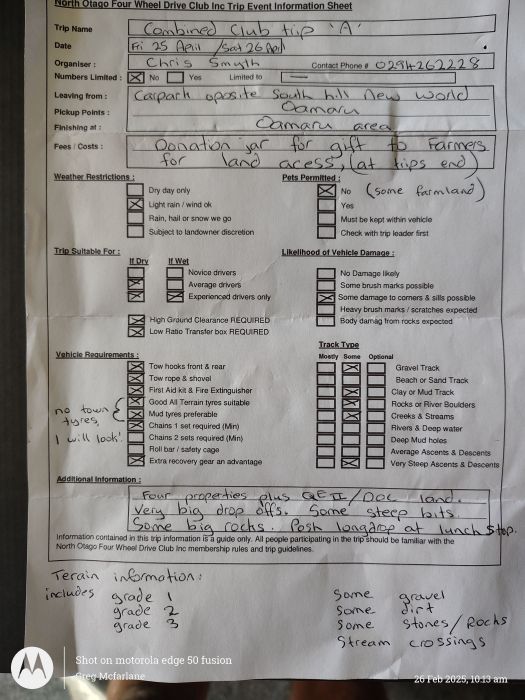 North Otago Four Wheel Drive Club Inc Trip Event Information Sheet
Trip Name Combined Club trip 'A'
Date Fri 25 April / Sat 26 April
Organiser : Chris Smyth Contact Phone # 0294262228
Numbers Limited : No Yes Limited to —
Leaving from : Carpark oposite South hill New World
Pickup Points : Oamaru
Finishing at : Oamaru area
Fees / Costs : Donation jar for gift to Farmers
for land acess, (at trips end)
Weather Restrictions : Pets Permitted :
Dry day only No (some farmland)
Light rain / wind ok Yes
Rain, hail or snow we go Must be kept within vehicle
Subject to landowner discretion Check with trip leader first
Trip Suitable For : Likelihood of Vehicle Damage :
If Dry If Wet
Novice drivers No Damage likely
Average drivers Some brush marks possible
Experienced drivers only Some damage to corners & sills possible
Heavy brush marks / scratches expected
High Ground Clearance REQUIRED Body damag from rocks expected
Low Ratio Transfer box REQUIRED
Track Type
Vehicle Requirements : Mostly Some Optional
Tow hooks front & rear Gravel Track
Tow rope & shovel Beach or Sand Track
First Aid kit & Fire Extinguisher Clay or Mud Track
Good All Terrain tyres suitable Rocks or River Boulders
no town tyres, Mud tyres preferable Creeks & Streams
Chains 1 set required (Min) Rivers & Deep water
I will look! Chains 2 sets required (Min) Deep Mud holes
Roll bar / safety cage Average Ascents & Descents
Extra recovery gear an advantage Very Steep Ascents & Descents
Additional Information :
Four properties plus QE II / DOC land.
Very big drop offs. Some steep bits.
Some big rocks. Posh longdrop at lunch stop.
Information contained in this trip information is a guide only. All people participating in the trip should be familiar with the
North Otago Four Wheel Drive Club Inc membership rules and trip guidelines.
Terrain information:
includes grade 1 Some gravel
grade 2 Some dirt
grade 3 Some stones / Rocks
Stream crossings
Shot on motorola edge 50 fusion
Greg Mcfarlane 26 Feb 2025, 10:13 am